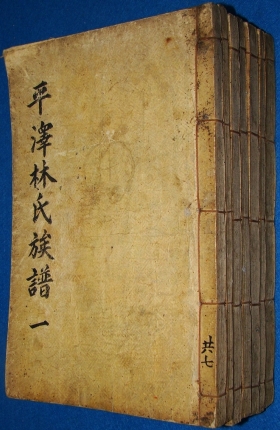 平澤林氏族譜 一
共七